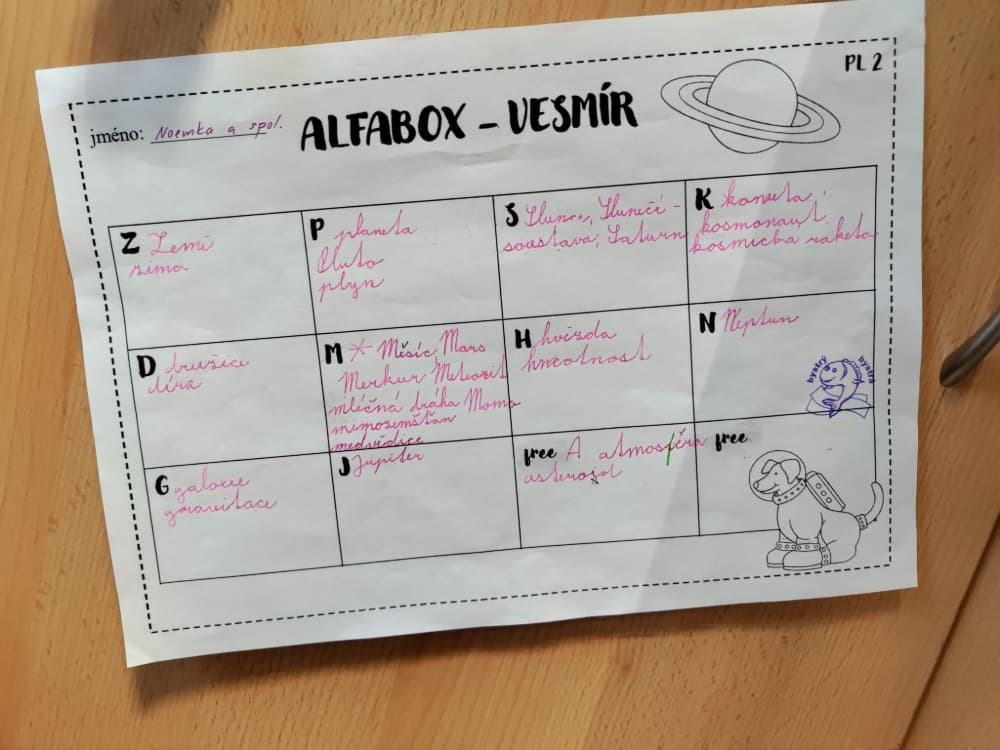 PL 2
jméno: Noemka a spol.
ALFABOX - VESMÍR
Z Země
zima
P planeta
Pluto
plyn
S Slunce, Sluneční -
soustava, Saturn
K kometa,
kosmonaut,
kosmická raketa
D družice
díra
M * Měsíc, Mars
Merkur, Meteorit
mléčná dráha Moma
mimozemšťan
medvědice
H hvězda
hmotnost
N Neptun
bystrý
bystrá
G galaxie
gravitace
J Jupiter
free A atmosféra
asteroid
free